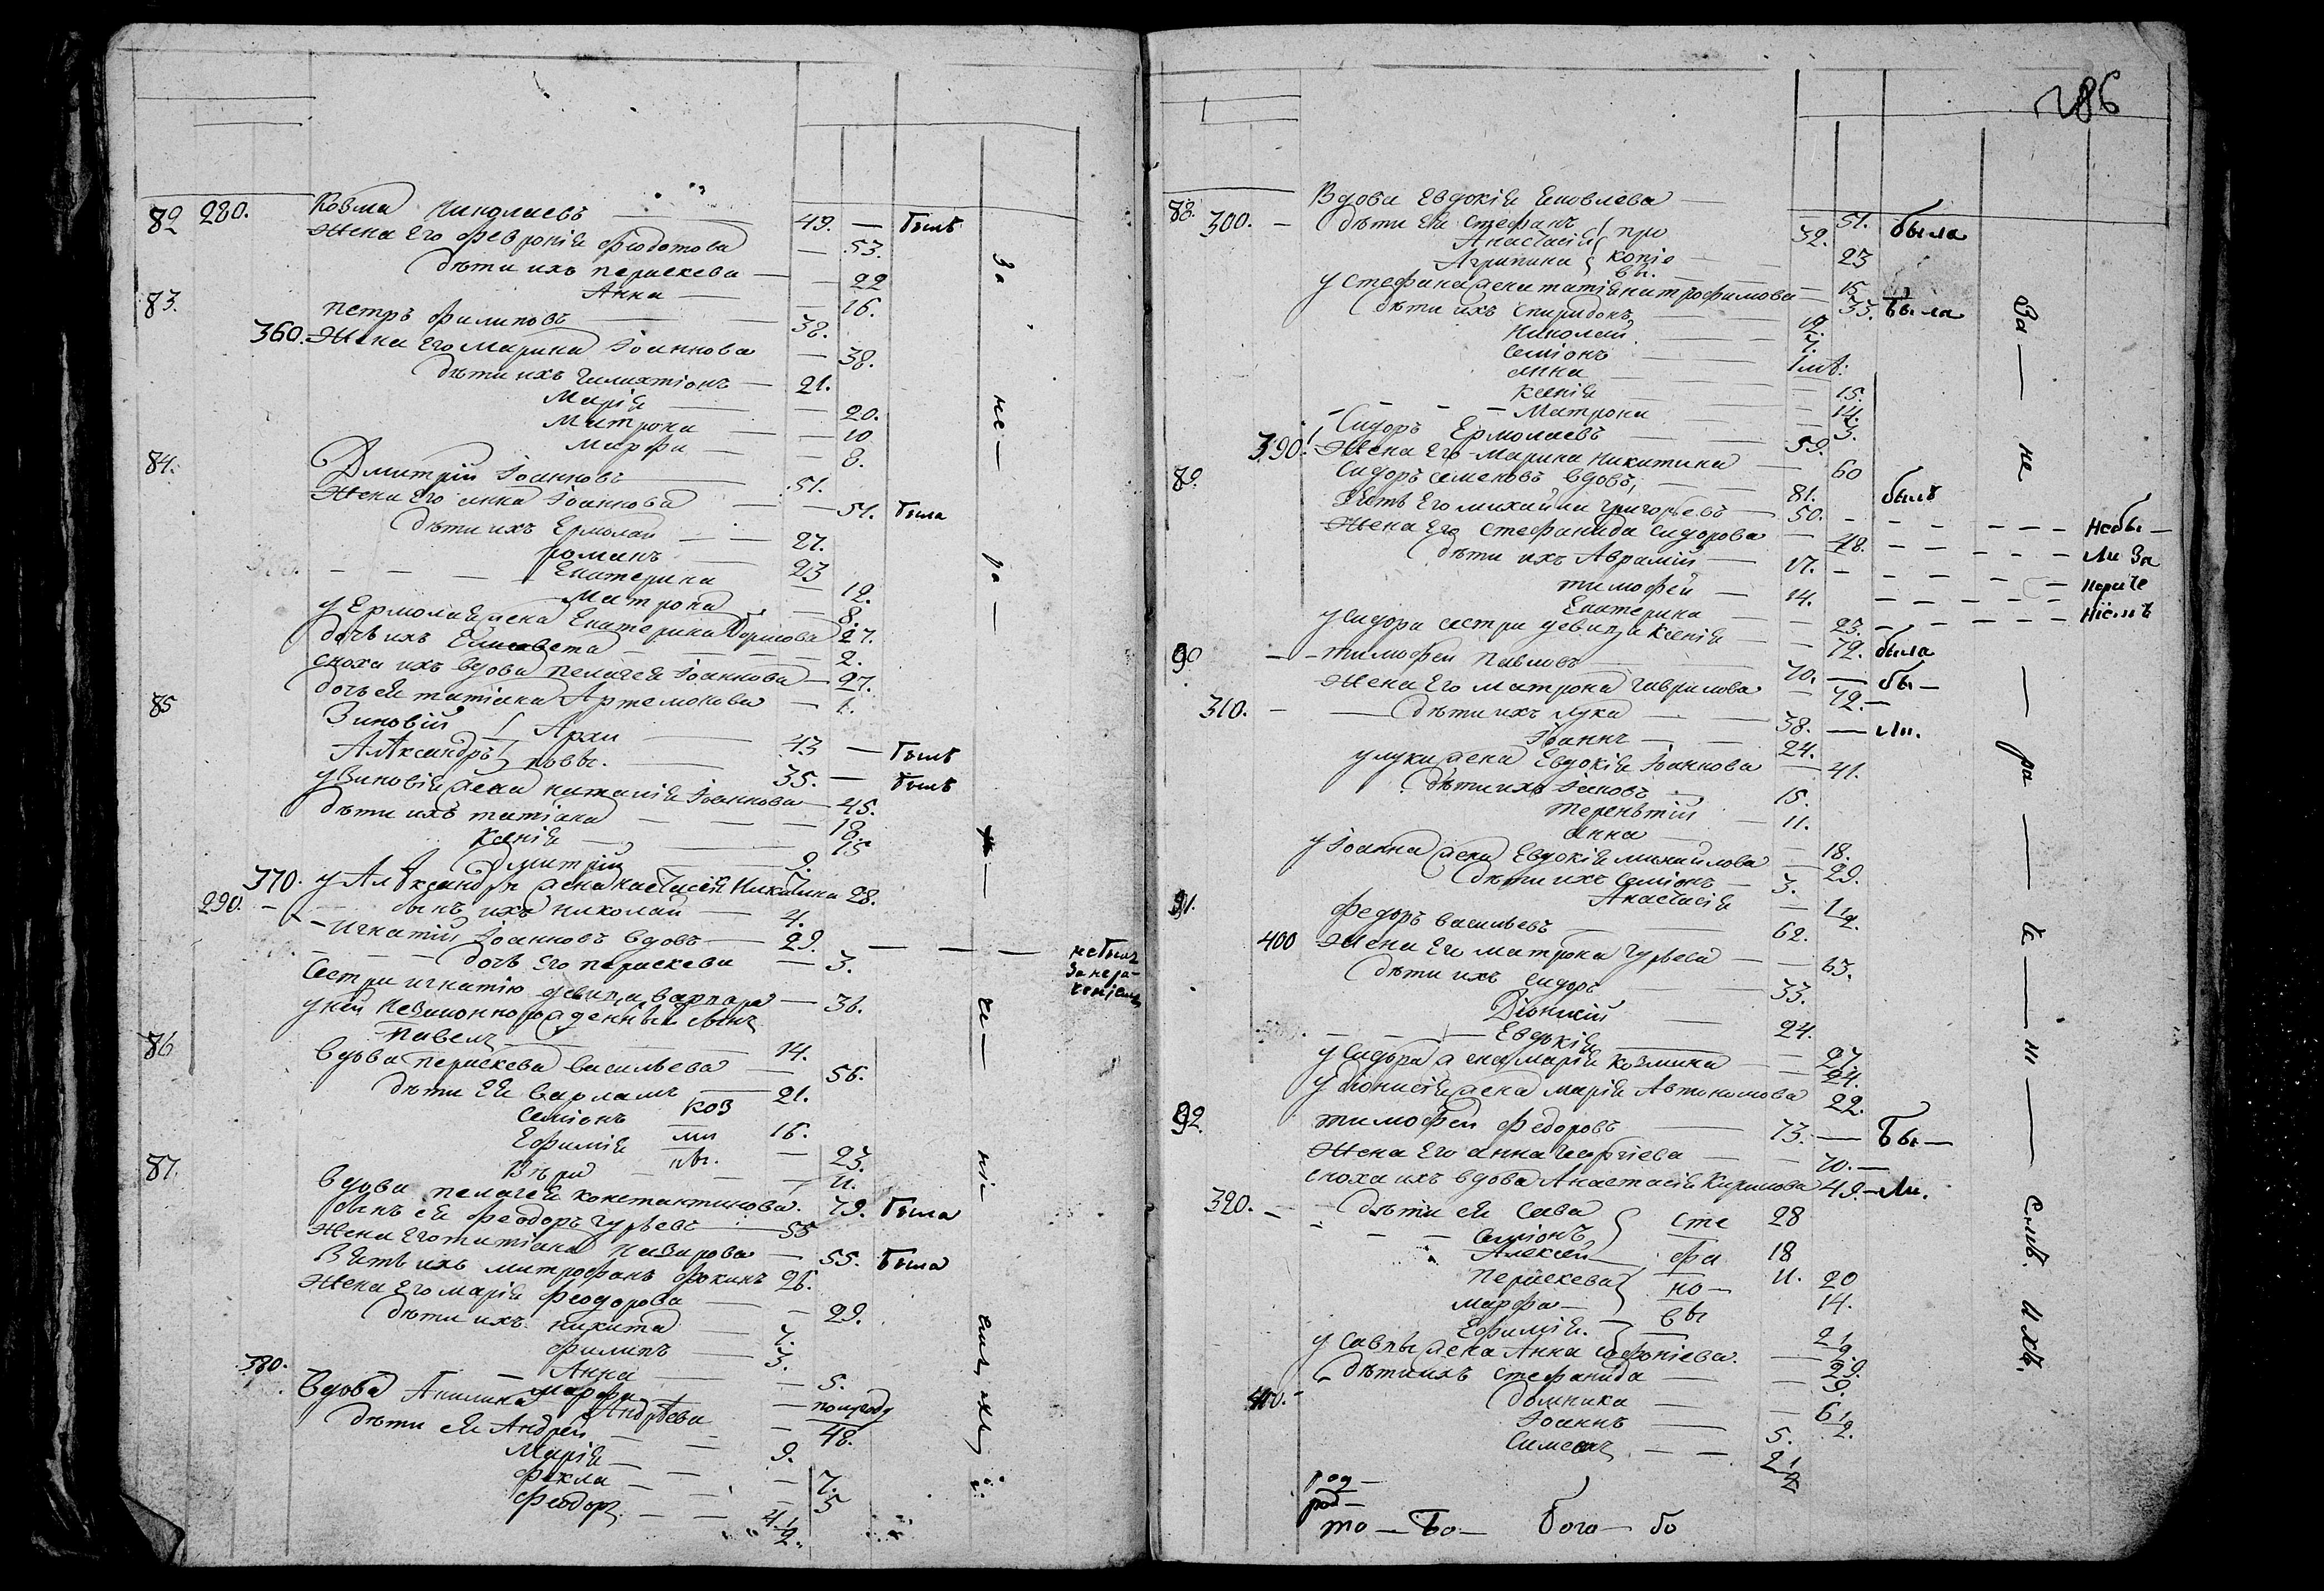 82 280. Козма Николаевъ — 49. — былъ
Жена Его Февронія Феодотова — 53.
дѣти ихъ Параскева — 22
Анна — 16.
83. Петръ Филиповъ — 38.
360. Жена Его Марина Іоаннова — 38.
дѣти ихъ — 21.
Марія — 20.
Матрона — 10
Марфа — 8.
84. Дмитрій Іоанновъ — 51.
Жена Его Анна Іоаннова — 51. была
дѣти ихъ Ермолай — 27.
Романъ — 23
Екатерина — 12.
Матрона — 8.
у Ермолая жена Екатерина Борисова 27.
дочь ихъ Елисавета — 2.
сноха ихъ вдова Пелагея Іоаннова — 27.
дочь ея Татіана Артемонова — 1.
85 Зиновій Архи — 43 — былъ
Алѣксандръ повы. — 35. — былъ
у Зиновія жена Наталія Іоаннова — 45.
дѣти ихъ Татіана — 18.
Ксенія — 15
Дмитрій — 9.
370. у Алѣксандра жена Настасія Никитина 28.
290. — сынъ ихъ Николай — 4.
Игнатій Іоанновъ вдовъ — 29. — — — не былъ
дочь Его Параскева — 3. за нера-
Сестра Игнатію девица Варвара — 36. деніемъ
у ней незаконнорожденный сынъ
Павелъ — 14.
86 Вдова Параскева Васильева — 56.
дѣти ея Варламъ — 21.
Семіонъ Коз 16.
Ефимія ми — 23.
Вѣра ны. — 11.
87. Вдова Пелагея Константинова. 79. была
сынъ ея Феодоръ Гурьевъ — 55
Жена Его Татіана Назарова — 55. была
Зять ихъ Митрофанъ Фокинъ 26.
Жена Его Марія Феодорова — 29.
дѣти ихъ Никита — 7.
Филипъ — 3.
380. Анна — 5.
Марфа — полугоду
Вдова Акилина Андрѣева — 48.
дѣти ея Андрей — 9.
Марія — 7.
Фекла — 5
Феодоръ — 4 1/2.
За — не — ра — — — ніемъ ихъ
286
88. Вдова Евдокія Яковлева — 51. была
300. — дѣти ея Стефанъ про 32.
Анастасія копіе 23
Агрипина вы. — 15
у Стефана жена Татіана Трофимова — 33. была
дѣти ихъ Спиридонъ — 12.
Николай — 7.
Семіонъ — 1 лѣ:
Анна — 15.
Ксенія — 14.
Матрона — 3.
Сидоръ Ермолаевъ — 59.
390. Жена Его Марина Никитина — 60
89. Сидоръ Семеновъ вдовъ, — 81. былъ
Зять Его Михаилъ Григорьевъ — 50. — — — Небы —
Жена Его Стефанида Сидорова — 48. — — — ли За
дѣти ихъ Аврамій — 17. — — — нераде
Тимофей — 14. — — — ніемъ
Екатерина — 23.
у Сидора сестра девица Ксенія — 72. была
90 Тимофей Павловъ — 70. — бы —
Жена Его Матрона Гаврилова — 72. —
310. — дѣти ихъ Лука — 38. — ли.
Іоаннъ — 24.
у Луки жена Евдокія Іоаннова — 41.
дѣти ихъ Іаковъ — 15.
Терентій — 11.
Анна — 18.
у Іоанна жена Евдокія Михайлова — 29.
дѣти ихъ Семіонъ — 3.
Анастасія — 1 1/2.
91. Федоръ Васильевъ — 62.
400 Жена Его Матрона Гурьева — 63.
дѣти ихъ Сидоръ — 33.
Діонисій — 24.
Евдокія — 27.
у Сидора жена Марія Козмина — 24.
у Діонисія жена Марія Автономова 22.
92. Тимофей Федоровъ — 73. — Бы —
Жена Его Анна Георгіева — 70. —
сноха ихъ вдова Анастасія Кирилова 49. — ли.
320. — дѣти ея Сава Сте 28
Семіонъ
Алексей фа 18
Параскева но — 11. 20
Марфа — вы 14.
Ефимія. — 2 1/2.
у Саввы жена Анна Софоніева. — 29.
дѣти ихъ Стефанида — 9.
410. Домника — 6 1/2.
Іоаннъ — 5.
Симеонъ — 2 1/2
За — не — ра — де — ні — емъ. ихъ.
род —
род —
то — Бо — Бого — бо